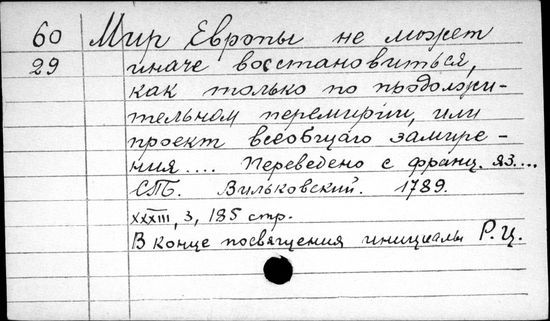 60 Мир Европы не может
29 иначе восстановиться,
как только по продолжи-
тельном перемирии, или
проект всеобщаго замире-
ния.... Переведено с франц. яз....
СПБ. Вильковский. 1789.
XXXIII, 3, 185 стр.
В конце посвящения инициалы Р.Ц.